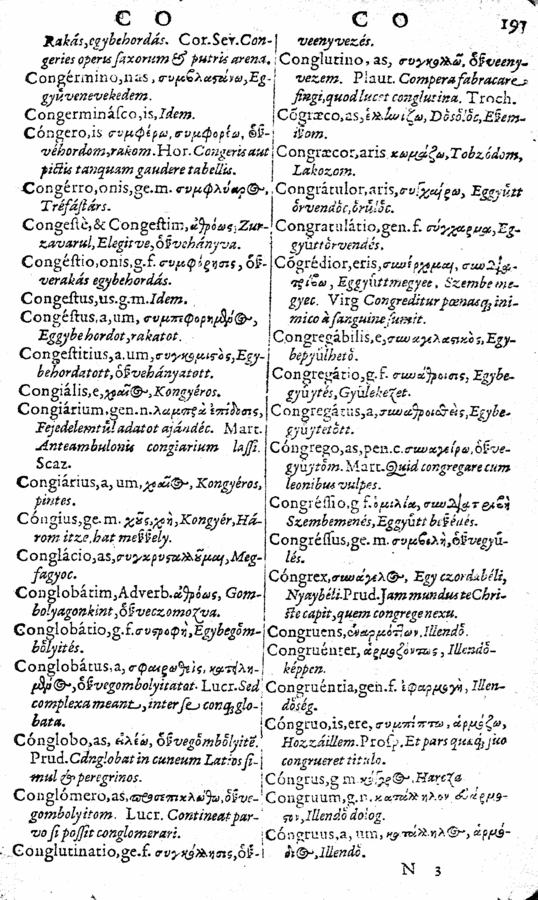 C O
C O
193
Rakás, egybehordás. Cor. Ser. Con-
geries operis saxorum & putris arena.
Congérmino, nas, συμβλαςάνω, Eg-
gyüvenevekedem.
Congermináſco, is, Idem.
Cóngero, is συμφέρω, συμφορέω, ő̈ſ-
vehordom, rakom. Hor. Congeris aut
pictis tanquam gaudere tabellis.
Congérro, onis, ge. m. συμφλύαρος,
Tréfáſtárs.
Congeſtè, & Congeſtim, ἀθρόως, Zur-
zavarul, Elegitve, ő̈ſvehányva.
Congéſtio, onis, g. f. συμφόρησις, ő̈ſ-
verakás egybehordás.
Congeſtus, us. g. m. Idem.
Congéſtus, a, um, συμπεφορημένος,
Eggybe hordot, rakatot.
Congeſtitius, a. um, συγκομιςὸς, Egy-
behordatott, ő̈ſvehányatott.
Congiális, e, χοαῖος, Kongyéros.
Congiárium, gen. n. λαμπρὰ ἐπίδοσις,
Fejedelemtül adatot ajándéc. Mart.
Anteambulonis congiarium laſſi.
Scaz.
Congiárius, a, um, χοαῖος, Kongyéros,
pintes.
Cóngius, ge. m. χοῦς, χοὴ, Kongyér, Há-
rom itze, hat meſſely.
Conglácio, as, συγκρυσαλλῦμαι, Meg-
fagyoc.
Conglobátim, Adverb. ἀθρόως, Gom-
bolyagonkint, ő̈ſveczomozva.
Conglobátio, g. f. συςροφὴ, Egybegőm-
bőlyités.
Conglobátus, a, σφαιρωθεὶς, κατηλη-
μένος, ő̈ſvegombolyitatat. Lucr. Sed
complexa meant, inter ſe conq, glo-
bata.
Conglobo, as, εἰλέω, ő̈ſvegőmbőlyité.
Prud. Conglobat in cuneum Latios ſi-
mul & peregrinos.
Conglómero, as, προσεπικλώθω, ő̈ſve-
gombolyitom. Lucr. Contineat par-
vo ſi poſſit conglomerari.
Conglutinatio, ge. f. συγκόλλησις, ő̈ſ-
veenyvezés.
Conglutino, as, συγκολλῶ, ő̈ſveeny-
vezem. Plaut. Compera fabracare
fingi, quod lucet conglutina. Troch.
Cõgræco, as, ἑλληνίζω, Dősőlőc, Eſzem-
iszom.
Congræcor, aris κωμάζω, Tobzódom,
Lakozom.
Congrátulor, aris, συγχαίρω, Eggyütt
őrvendőc, őrűlőc.
Congratulátio, gen. f. σύγχαρμα, Eg-
gyüttőrvendés.
Cõgrédior, eris, συνέρχομαι, συνδια-
τρίβω, Eggyüttmegyec. Szembe me-
gyec. Virg Congreditur pœnasq, ini-
mico à ſanguine ſumit.
Congregábilis, e, συναγελαςικὸς, Egy-
bepyülhető.
Congregátio, g. f. συνάθροισις, Egybe-
gyüytés, Gyülekezet.
Congregátus, a, συναθροισθεὶς, Egybe-
gyüytetőtt.
Cóngrego, as, pen. c. συναγείρω, ő̈ſve-
gyüytőm. Mart. Quid congregare cum
leonibus vulpes.
Congréſſio, g f. ὁμιλία, συνδιατριβὴ
Szembemenés, Eggyütt biſzéllés.
Congréſſus, ge. m. συμβολὴ, ő̈ſvegyü-
lés.
Cóngrex, συνάγελος, Egy czordabéli,
Nyaybéli. Prud. Jam mundus te Chri-
ſte capit, quem congrege nexu.
Congruens, ἐναρμόττων. Illendő.
Congruénter, ἁρμοζόντως, Illendő-
képpen.
Congruéntia, gen. f. ἐφαρμογὴ, Illen-
dőség.
Cóngruo, is, ere, συμπίπτω, ἁρμόζω,
Hozzáillem. Proſp. Et pars quæq, ſuo
congrueret titulo.
Cóngrus, g m Harcza
Congruum, g. n. κατάλληλον
Illendő dolog.
Cóngruus, a, um, κατάλληλος, ἁρμό-
διος, Illendő.
N 3